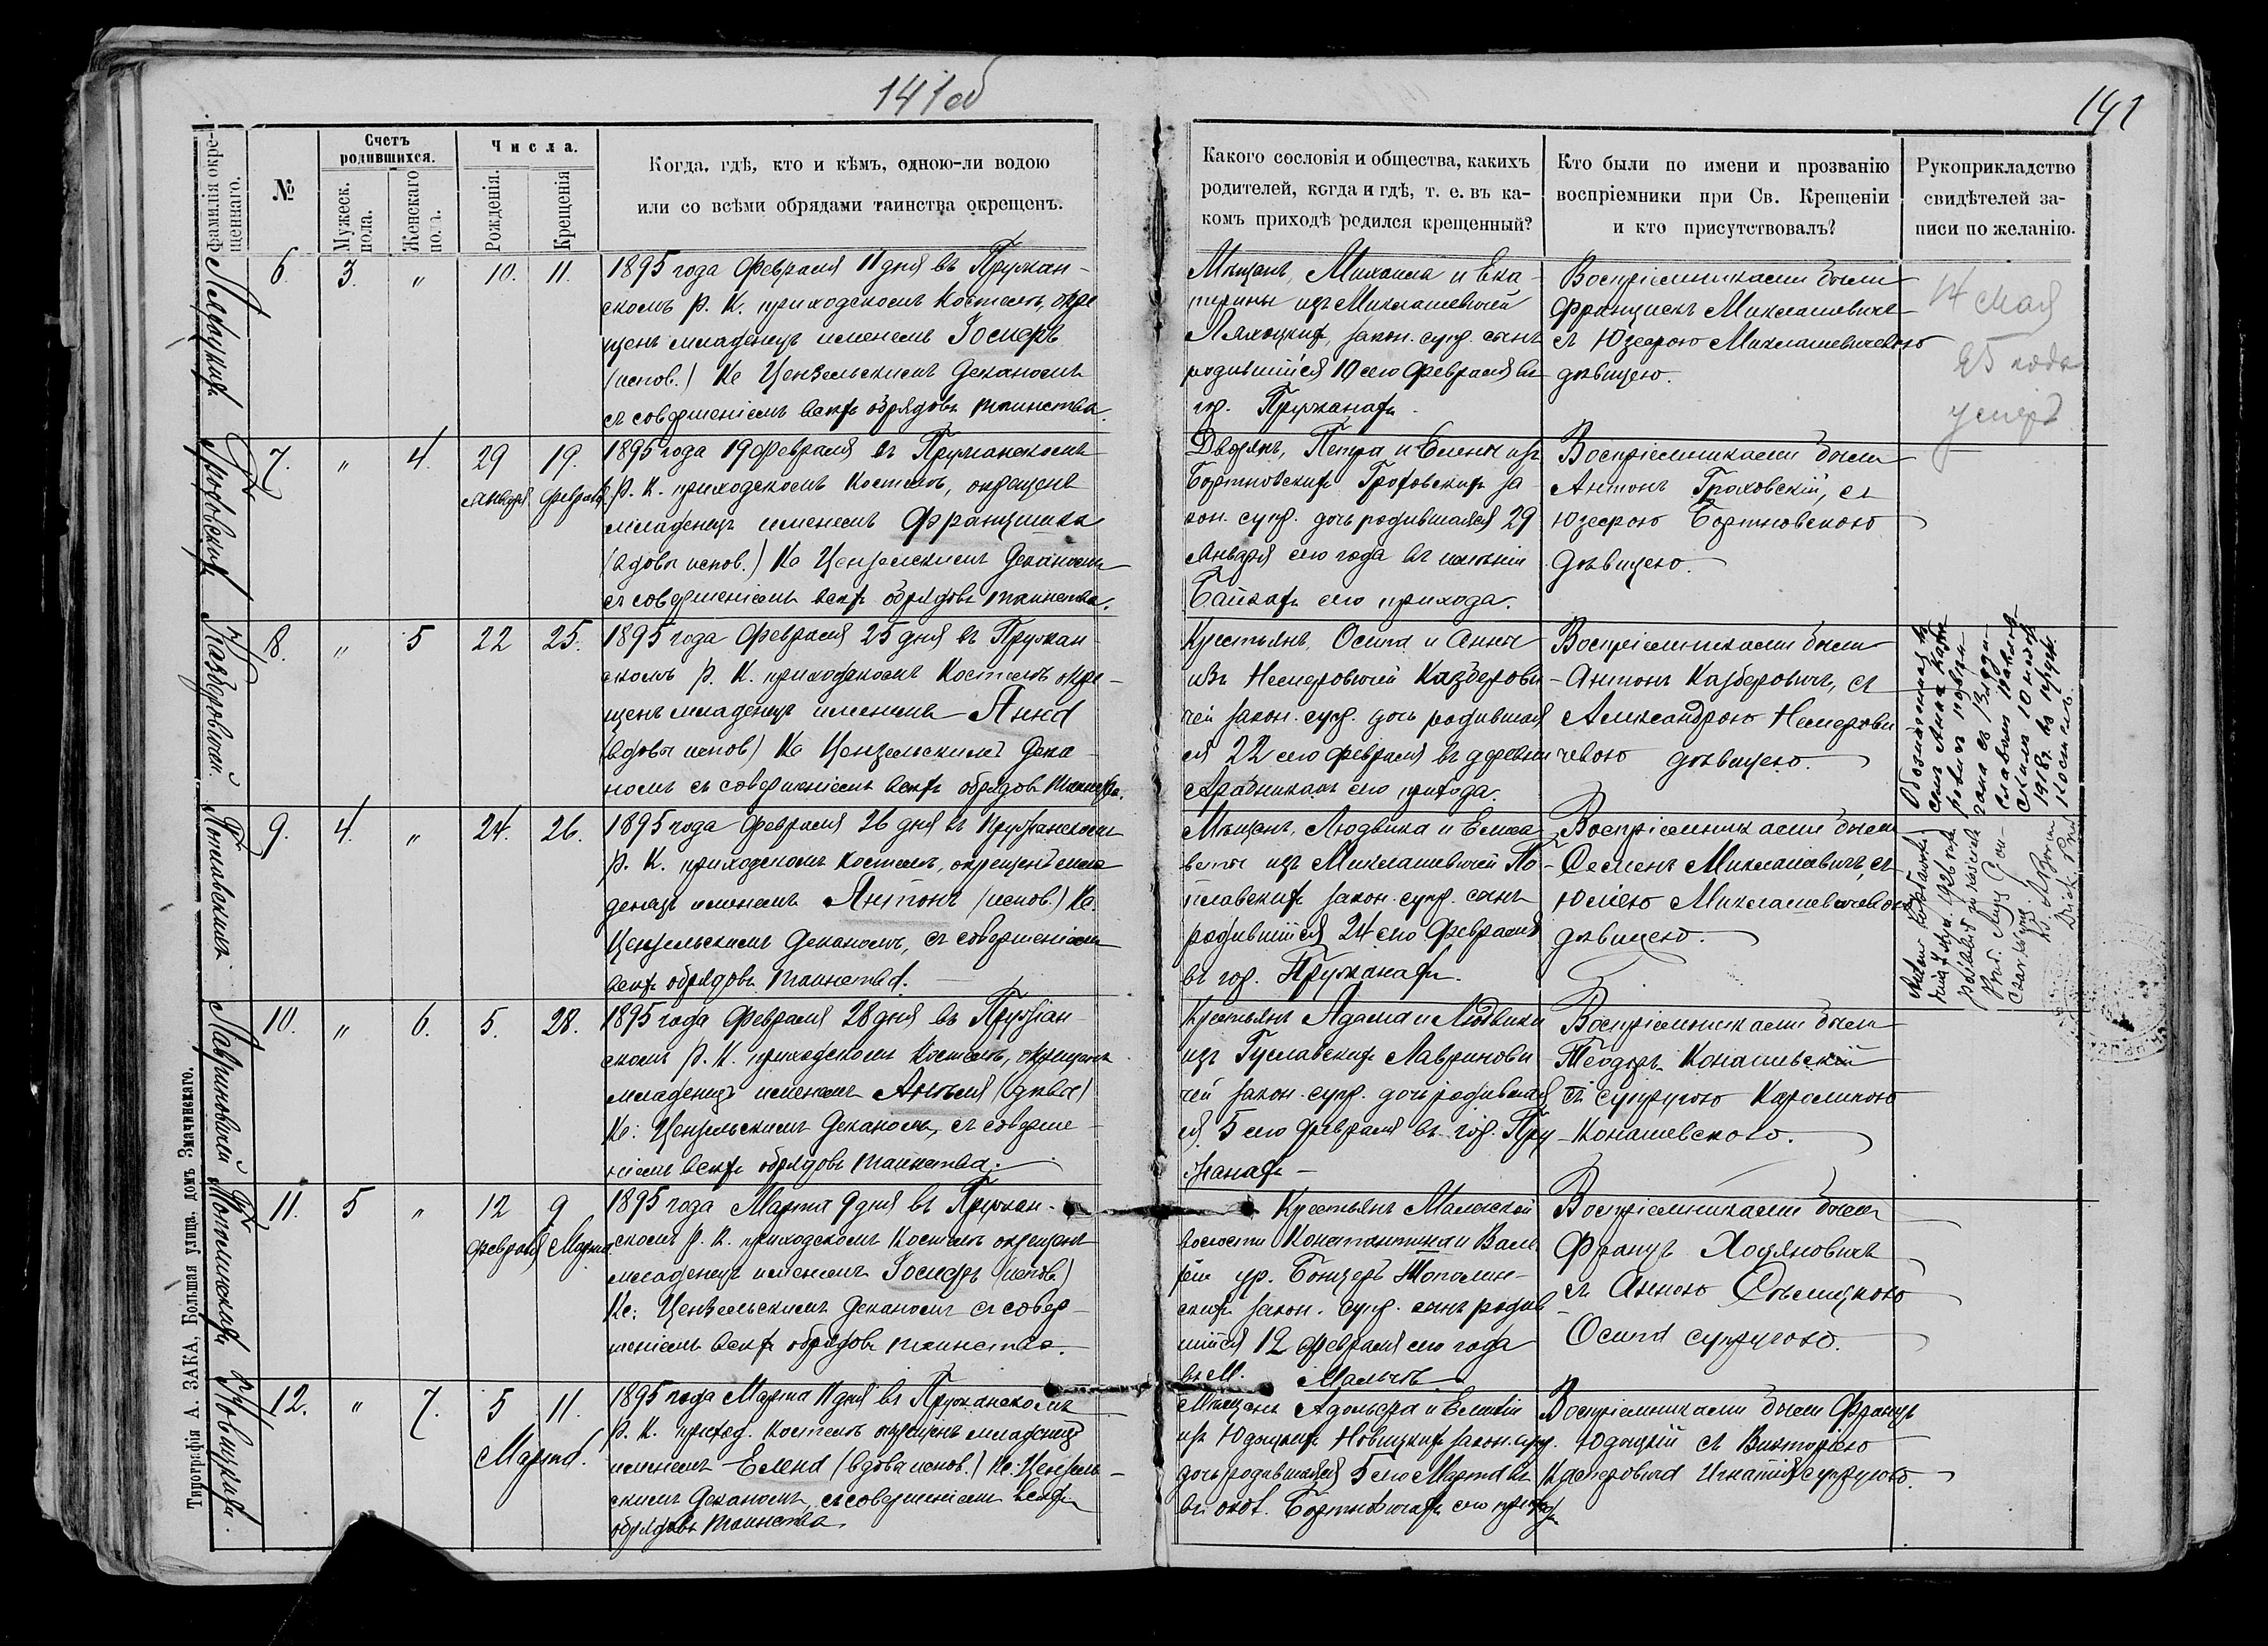 141об
141
фамилія окре-
щеннаго.
№
Счетъ
родившихся.
Мужеск.
пола.
Женскаго
пола.
Числа.
Рожденія.
Крещенія
Когда, гдѣ, кто и кѣмъ, одною-ли водою
или со всѣми обрядами таинства окрещенъ.
Какого сословія и общества, какихъ
родителей, когда и гдѣ, т. е. въ ка-
комъ приходѣ родился крещенный?
Кто были по имени и прозванію
воспріемники при Св. Крещеніи
и кто присутствовалъ?
Рукоприкладство
свидѣтелей за-
писи по желанію.
6. 3. " 10. 11.
1895 года Февраля 11 дня въ Пружан-
скомъ Р. К. приходскомъ костелѣ, окре
щенъ младенецъ именемъ Іосифъ
(испов.) Кс Цензельскимъ Деканомъ
съ совершеніемъ всѣхъ обрядовъ таинства.
Мѣщанъ, Михаила и Ека-
терины изъ Миклашевичей
закон. супр. сынъ
родившійся 10 сего Февраля въ
гор. Пружанахъ.
Воспріемниками были
Францискъ Миклашевичъ
съ Юзефою Миклашевичевою
дѣвицею.
14 мая
25 года
умеръ
Гроховскихъ
7. " 4. 29 19.
Января Февраля
1895 года 19 Февраля въ Пружанскомъ
Р. К. приходскомъ костелѣ, окрещенъ
младенецъ именемъ Францишка
(вдова испов.) Кс Цензельскимъ Деканомъ
съ совершеніемъ всѣхъ обрядовъ таинства.
Дворянъ, Петра и Елены изъ
Бортновскихъ Гроховскихъ за-
кон. супр. дочь родившаяся 29
Января сего года въ имѣніи
Байкахъ сего прихода.
Воспріемниками были
Антонъ Гроховскій, съ
Юзефою Бортновскою
дѣвицею.
Казберовичей
8. " 5 22 25.
1895 года Февраля 25 дня въ Пружан-
скомъ Р. К. приходскомъ Костелѣ окре-
щенъ младенецъ именемъ Анна
(вдова испов) Кс Цензельскимъ Дека-
номъ съ совершеніемъ всѣхъ обрядовъ таинства.
Крестьянъ, Осипа и Анны
изъ Немеровичей Казберови-
чей закон. супр. дочь родившая
ся 22 сего Февраля въ деревни
сего прихода.
Воспріемниками были
Антонъ Казберовичъ, съ
Александрою Немерови
чевою дѣвицею.
1918 г. въ
костелѣ.
Потпавскихъ
9. 4. " 24. 26.
1895 года Февраля 26 дня въ Пружанскомъ
Р. К. приходскомъ костелѣ, окрещенъ мла
денецъ именемъ Антонъ (испов.) Кс.
Цензельскимъ Деканомъ, съ совершеніемъ
всѣхъ обрядовъ таинства.
Мѣщанъ, Людвика и Елиса
веты изъ Миклашевичей По-
тлавскихъ закон. супр. сынъ
родившійся 24 сего Февраля
въ гор. Пружанахъ.
Воспріемниками были
Семенъ Миклашевичъ, съ
Юліею Миклашевичевою
дѣвицею.
Лавриновичей
10. " 6. 5. 28.
1895 года Февраля 28 дня въ Пружан-
скомъ Р. К. приходскомъ Костелѣ, окрещенъ
младенецъ именемъ Анѣля (дѣва)
Кс: Цензельскимъ Деканомъ, съ соверше-
ніемъ всѣхъ обрядовъ таинства.
Крестьянъ Адама и Людвики
изъ Гуславскихъ Лавринови
чей закон. супр. дочь родившая
ся 5 сего Февраля въ гор. Пру-
жанахъ
Воспріемниками были
Теодоръ Конашевскій
съ супругою Каролиною
Конашевскою.
Тополинскихъ
11. 5 " 12 9
Февраля Марта
1895 года Марта 9 дня въ Пружан-
скомъ Р. К. приходскомъ Костелѣ окрещенъ
младенецъ именемъ Іосифъ (испов.)
Кс: Цензельскимъ Деканомъ съ совер-
шеніемъ всѣхъ обрядовъ таинства.
Крестьянъ Малечской
волости Константина и Вале
ріи ур. Бонцеръ Тополин-
скихъ закон. супр. сынъ родив
шійся 12 Февраля сего года
въ М. Мальчъ
Воспріемниками были
Францъ Ходяновичъ
съ Анною
Осипа супругою.
Новицкихъ.
12. " 7. 5 11.
Марта.
1895 года Марта 11 дня въ Пружанскомъ
Р. К. приход. костелѣ окрещенъ младенецъ
именемъ Елена (вдова испов.) Кс: Цензель-
скимъ Деканомъ, съ совершеніемъ всѣхъ
обрядовъ таинства.
Мѣщанъ Адольфа и Емиліи
изъ Юдыцкихъ Новицкихъ закон. супр.
дочь родившаяся 5 сего Марта въ
сего прихода
Воспріемниками были Францъ
Юдыцкій съ Викторіею
Касперовича Игнатія супругою.
Типографія А. ЗАКА, Большая улица, домъ Значинскаго.